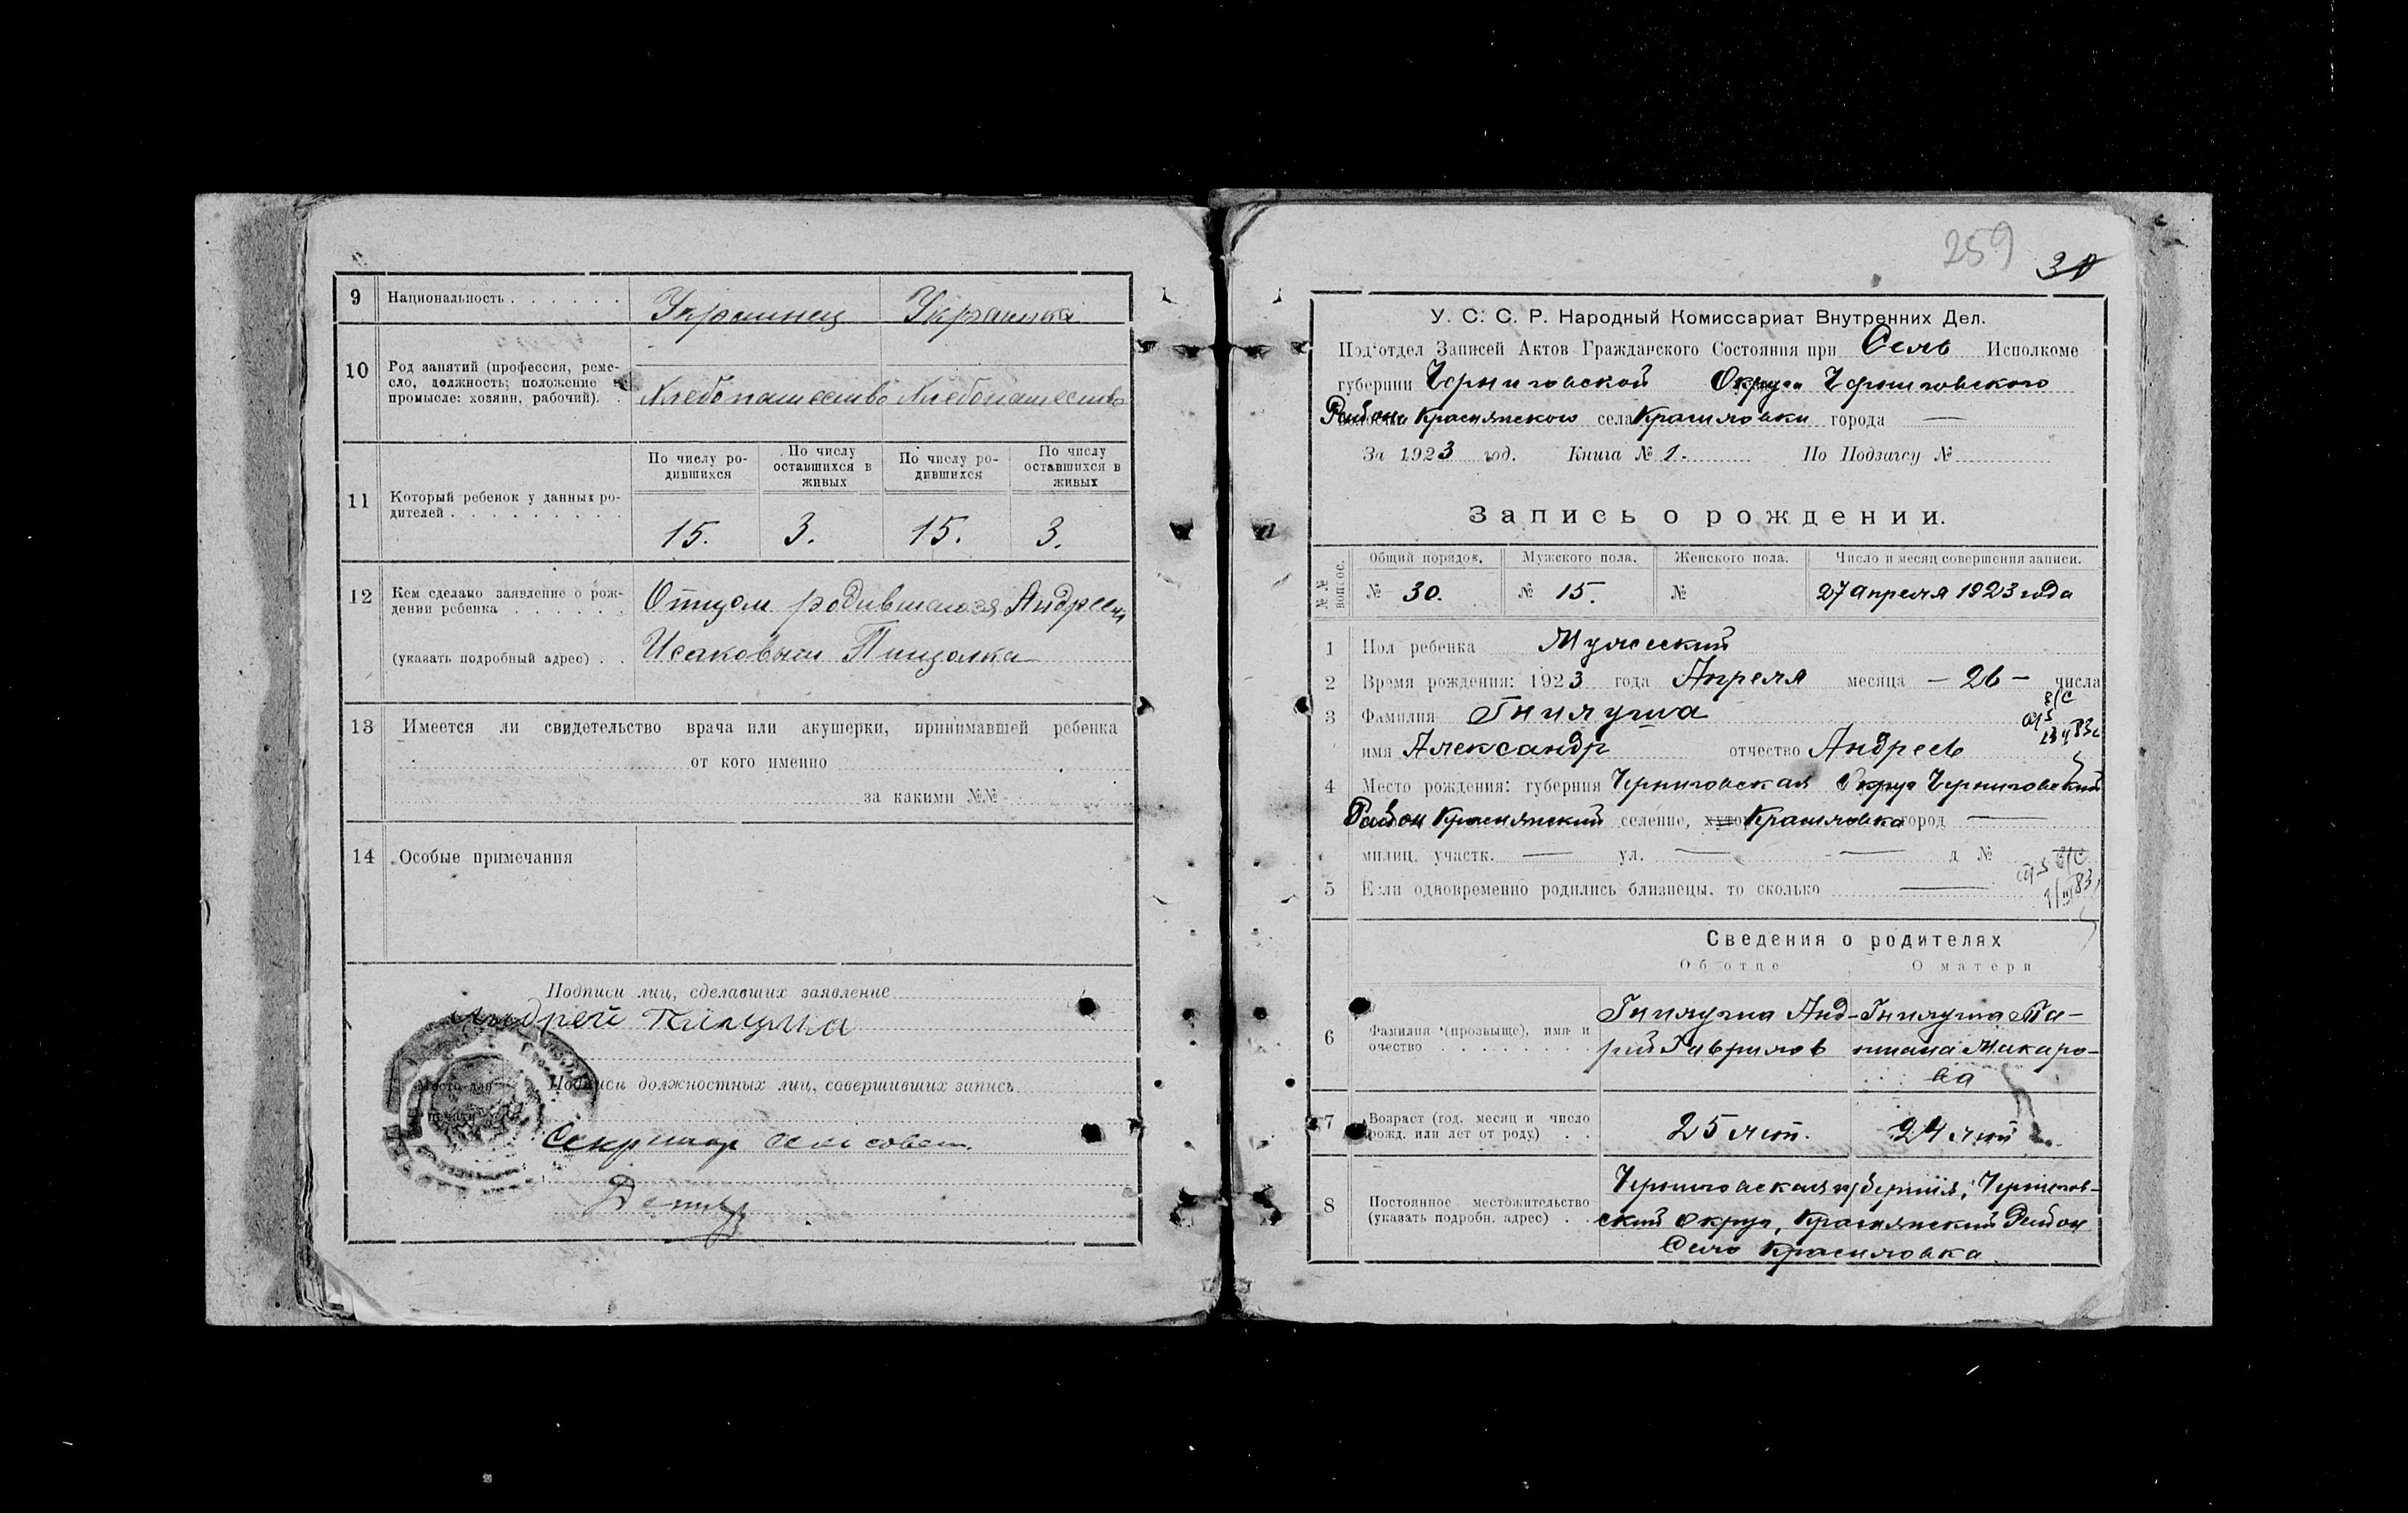 9 Национальность . . . . . . Украинец Украинка
10 Род занятий (профессия, реме-
сло, должность; положение в
промысле: хозяин, рабочий). . Хлебопашество Хлебопашество
По числу ро-
дившихся
По числу
оставшихся в
живых
По числу ро-
дившихся
По числу
оставшихся в
живых
11 Который ребенок у данных ро-
дителей . . . . . . . . . 15. 3. 15. 3.
12 Кем сделано заявление о рож-
дении ребенка . . . . . . Отцом родившагося Андреем
(указать подробный адрес) . . Исаковым
13 Имеется ли свидетельство врача или акушерки, принимавшей ребенка
от кого именно
за какими №№
14 Особые примечания
Подписи лиц, сделавших заявление
Андрей
Место для
печати
Подписи должностных лиц, совершивших запись
Секретар сельсовет.
259
30
У. С. С. Р. Народный Комиссариат Внутренних Дел.
Под'отдел Записей Актов Гражданского Состояния при Сель Исполкоме
губернии Черниговской Округа Черниговского
Района Краснянского села Красиловки города —
За 1923 год. Книга № 1. По Подзагсу №
Запись о рождении.
№№ вопрос.
Общий порядок. Мужского пола. Женского пола. Число и месяц совершения записи.
№ 30. № 15. № 27 апреля 1923 года
1 Пол ребенка Мужеский
2 Время рождения: 1923 года Апреля месяца — 26 — числа
3 Фамилия Гнилуша
имя Александр отчество Андреев
4 Место рождения: губерния Черниговская Округ Черниговский
Район Краснянский селение, Красиловка город —
милиц. участк. — ул. — — д №
5 Если одновременно родились близнецы, то сколько —
Сведения о родителях
Об отце О матери
6 Фамилия (прозвыще), имя и
очество . . . . . . . .
Гнилуша Анд-
рей Гаврилов
Гнилуша Та-
тиана Макаро-
ва
7 Возраст (год, месяц и число
рожд. или лет от роду) . . 25 лет. 24 лет
8 Постоянное местожительство
(указать подробн. адрес) . .
Черниговская губерния, Чернигов-
ский Округ, Краснянский Район
Село Красиловка